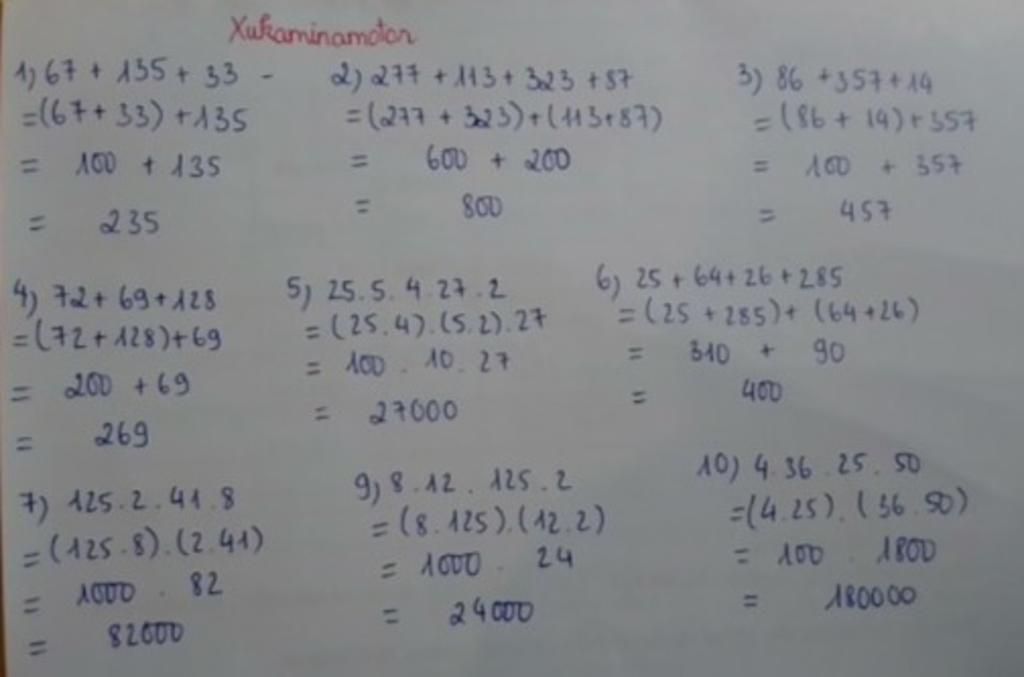 Xukaminamoton
1) 67 + 135 + 33 -
= (67 + 33) + 135
= 100 + 135
= 235
2) 277 + 113 + 323 + 87
= (277 + 323) + (113 + 87)
= 600 + 200
= 800
3) 86 + 357 + 14
= (86 + 14) + 357
= 100 + 357
= 457
4) 72 + 69 + 128
= (72 + 128) + 69
= 200 + 69
= 269
5) 25 . 5 . 4 . 27 . 2
= (25 . 4) . (5 . 2) . 27
= 100 . 10 . 27
= 27000
6) 25 + 64 + 26 + 285
= (25 + 285) + (64 + 26)
= 310 + 90
= 400
7) 125 . 2 . 41 . 8
= (125 . 8) . (2 . 41)
= 1000 . 82
= 82000
9) 8 . 12 . 125 . 2
= (8 . 125) . (12 . 2)
= 1000 . 24
= 24000
10) 4 . 36 . 25 . 50
= (4 . 25) . (36 . 50)
= 100 . 1800
= 180000